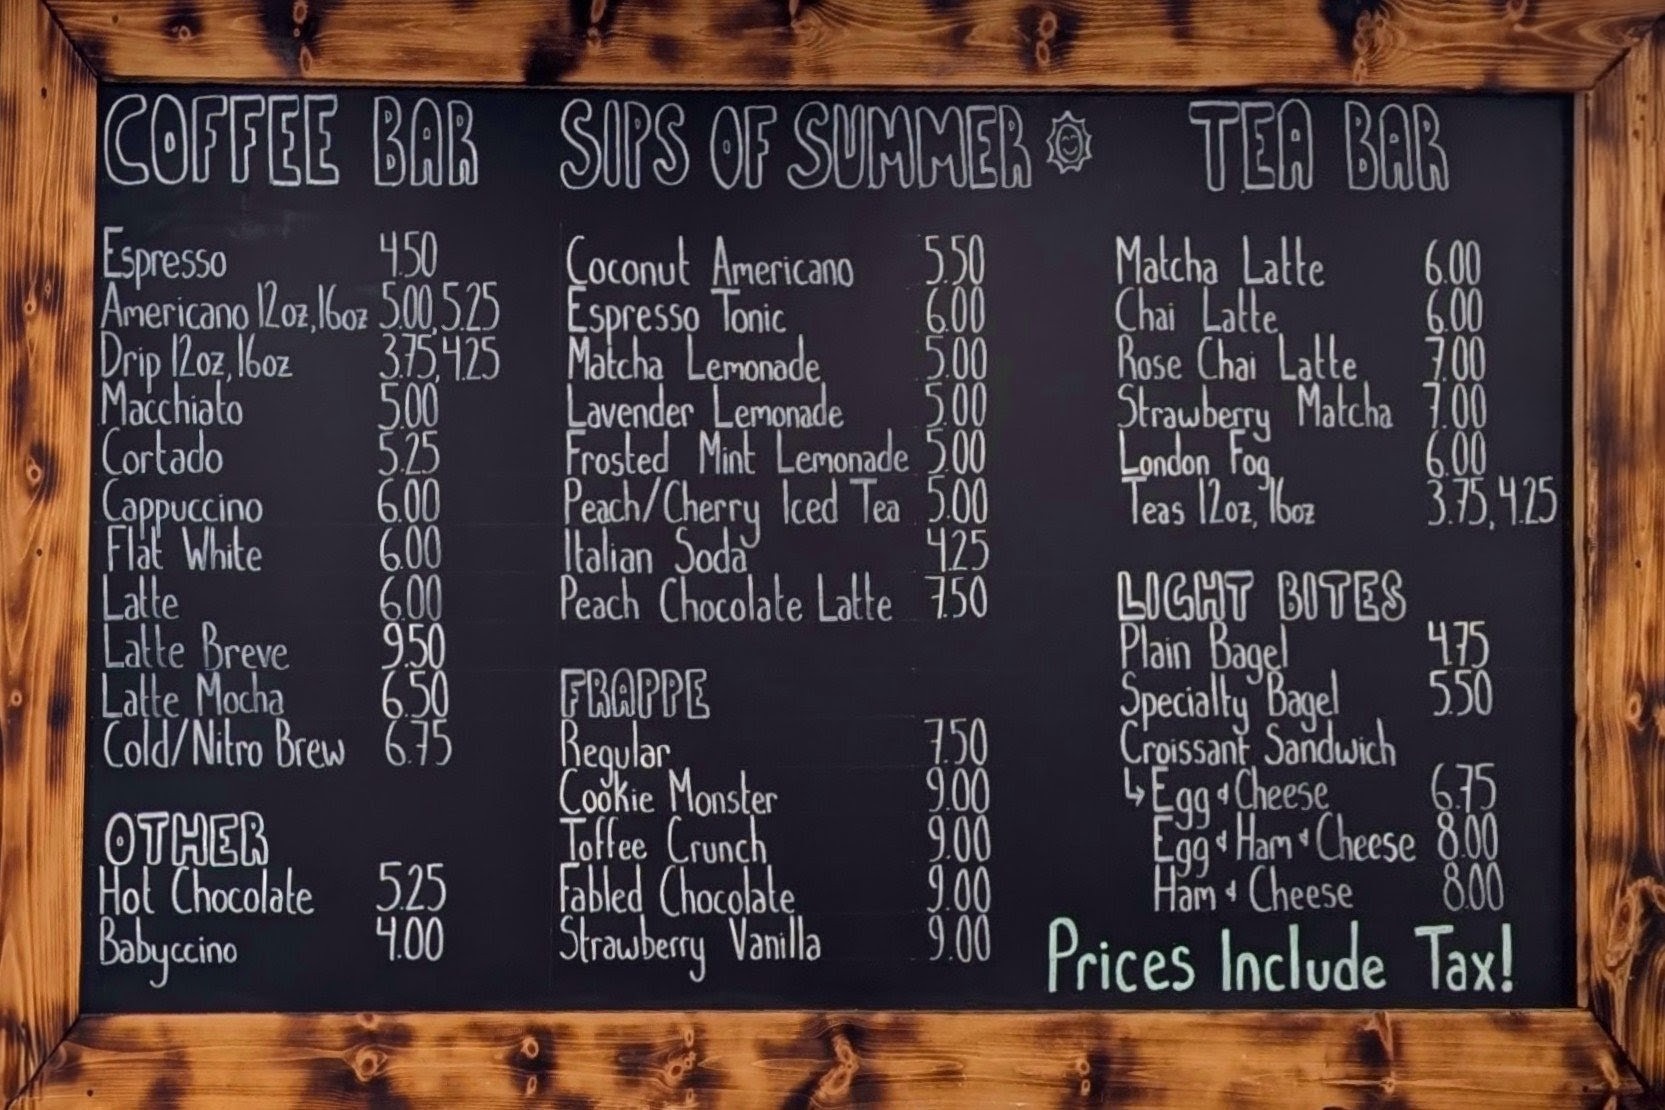 COFFEE BAR
Espresso 4.50
Americano 12oz, 16oz 5.00, 5.25
Drip 12oz, 16oz 3.75, 4.25
Macchiato 5.00
Cortado 5.25
Cappuccino 6.00
Flat White 6.00
Latte 6.00
Latte Breve 9.50
Latte Mocha 6.50
Cold/Nitro Brew 6.75
OTHER
Hot Chocolate 5.25
Babyccino 4.00
SIPS OF SUMMER
Coconut Americano 5.50
Espresso Tonic 6.00
Matcha Lemonade 5.00
Lavender Lemonade 5.00
Frosted Mint Lemonade 5.00
Peach/Cherry Iced Tea 5.00
Italian Soda 4.25
Peach Chocolate Latte 7.50
FRAPPE
Regular 7.50
Cookie Monster 9.00
Toffee Crunch 9.00
Fabled Chocolate 9.00
Strawberry Vanilla 9.00
TEA BAR
Matcha Latte 6.00
Chai Latte 6.00
Rose Chai Latte 7.00
Strawberry Matcha 7.00
London Fog 6.00
Teas 12oz, 16oz 3.75, 4.25
LIGHT BITES
Plain Bagel 4.75
Specialty Bagel 5.50
Croissant Sandwich
↳ Egg & Cheese 6.75
Egg & Ham & Cheese 8.00
Ham & Cheese 8.00
Prices Include Tax!